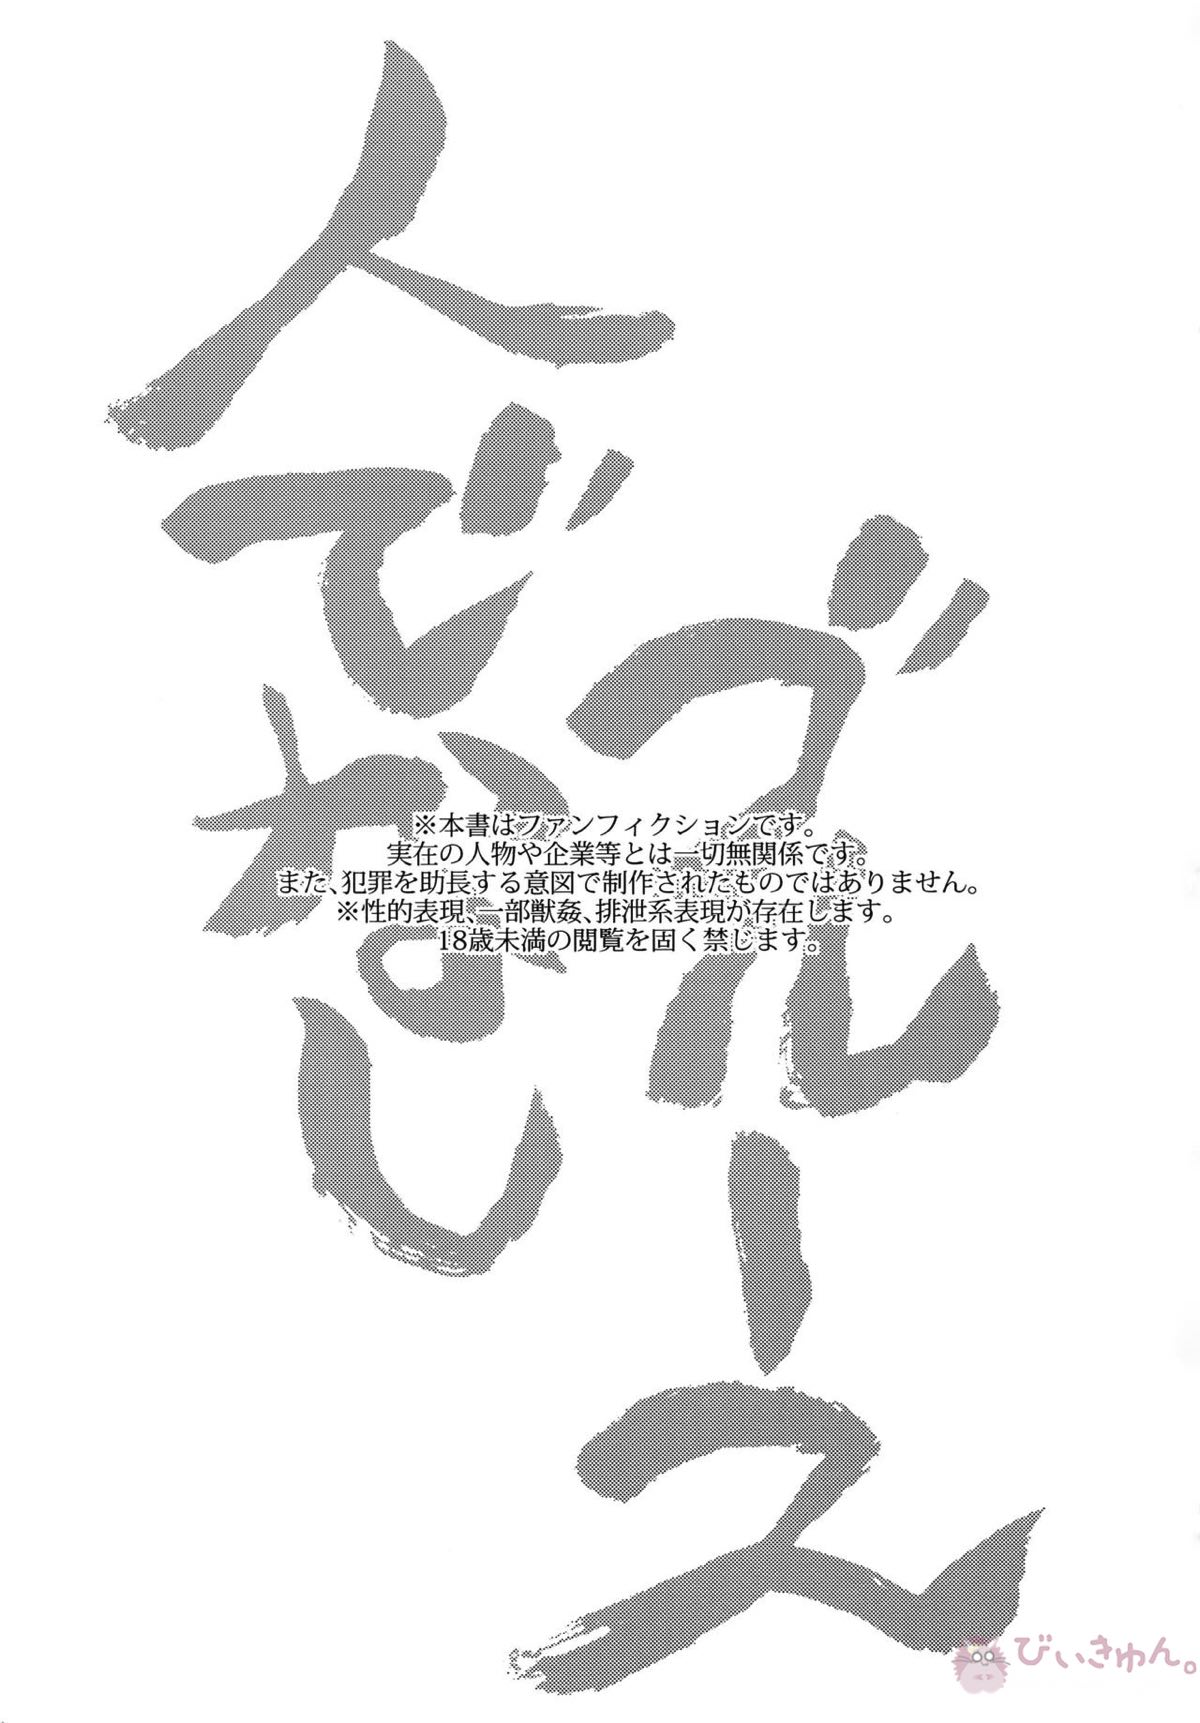 ブルース
人でなし
※本書はファンフィクションです。
実在の人物や企業等とは一切無関係です。
また、犯罪を助長する意図で制作されたものではありません。
※性的表現、一部獣姦、排泄系表現が存在します。
18歳未満の閲覧を固く禁じます。
びぃきゅん。